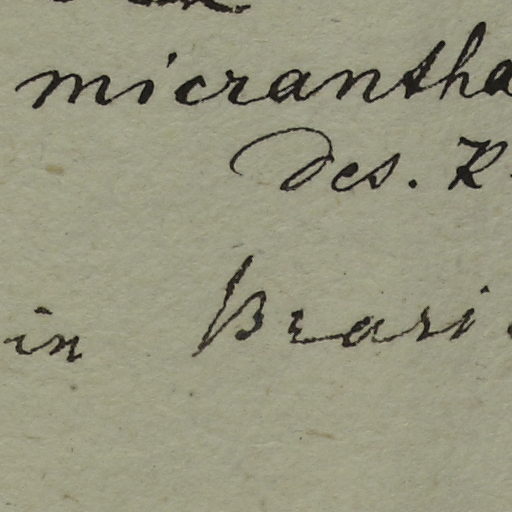 micrantha
Des. K
in Brasi